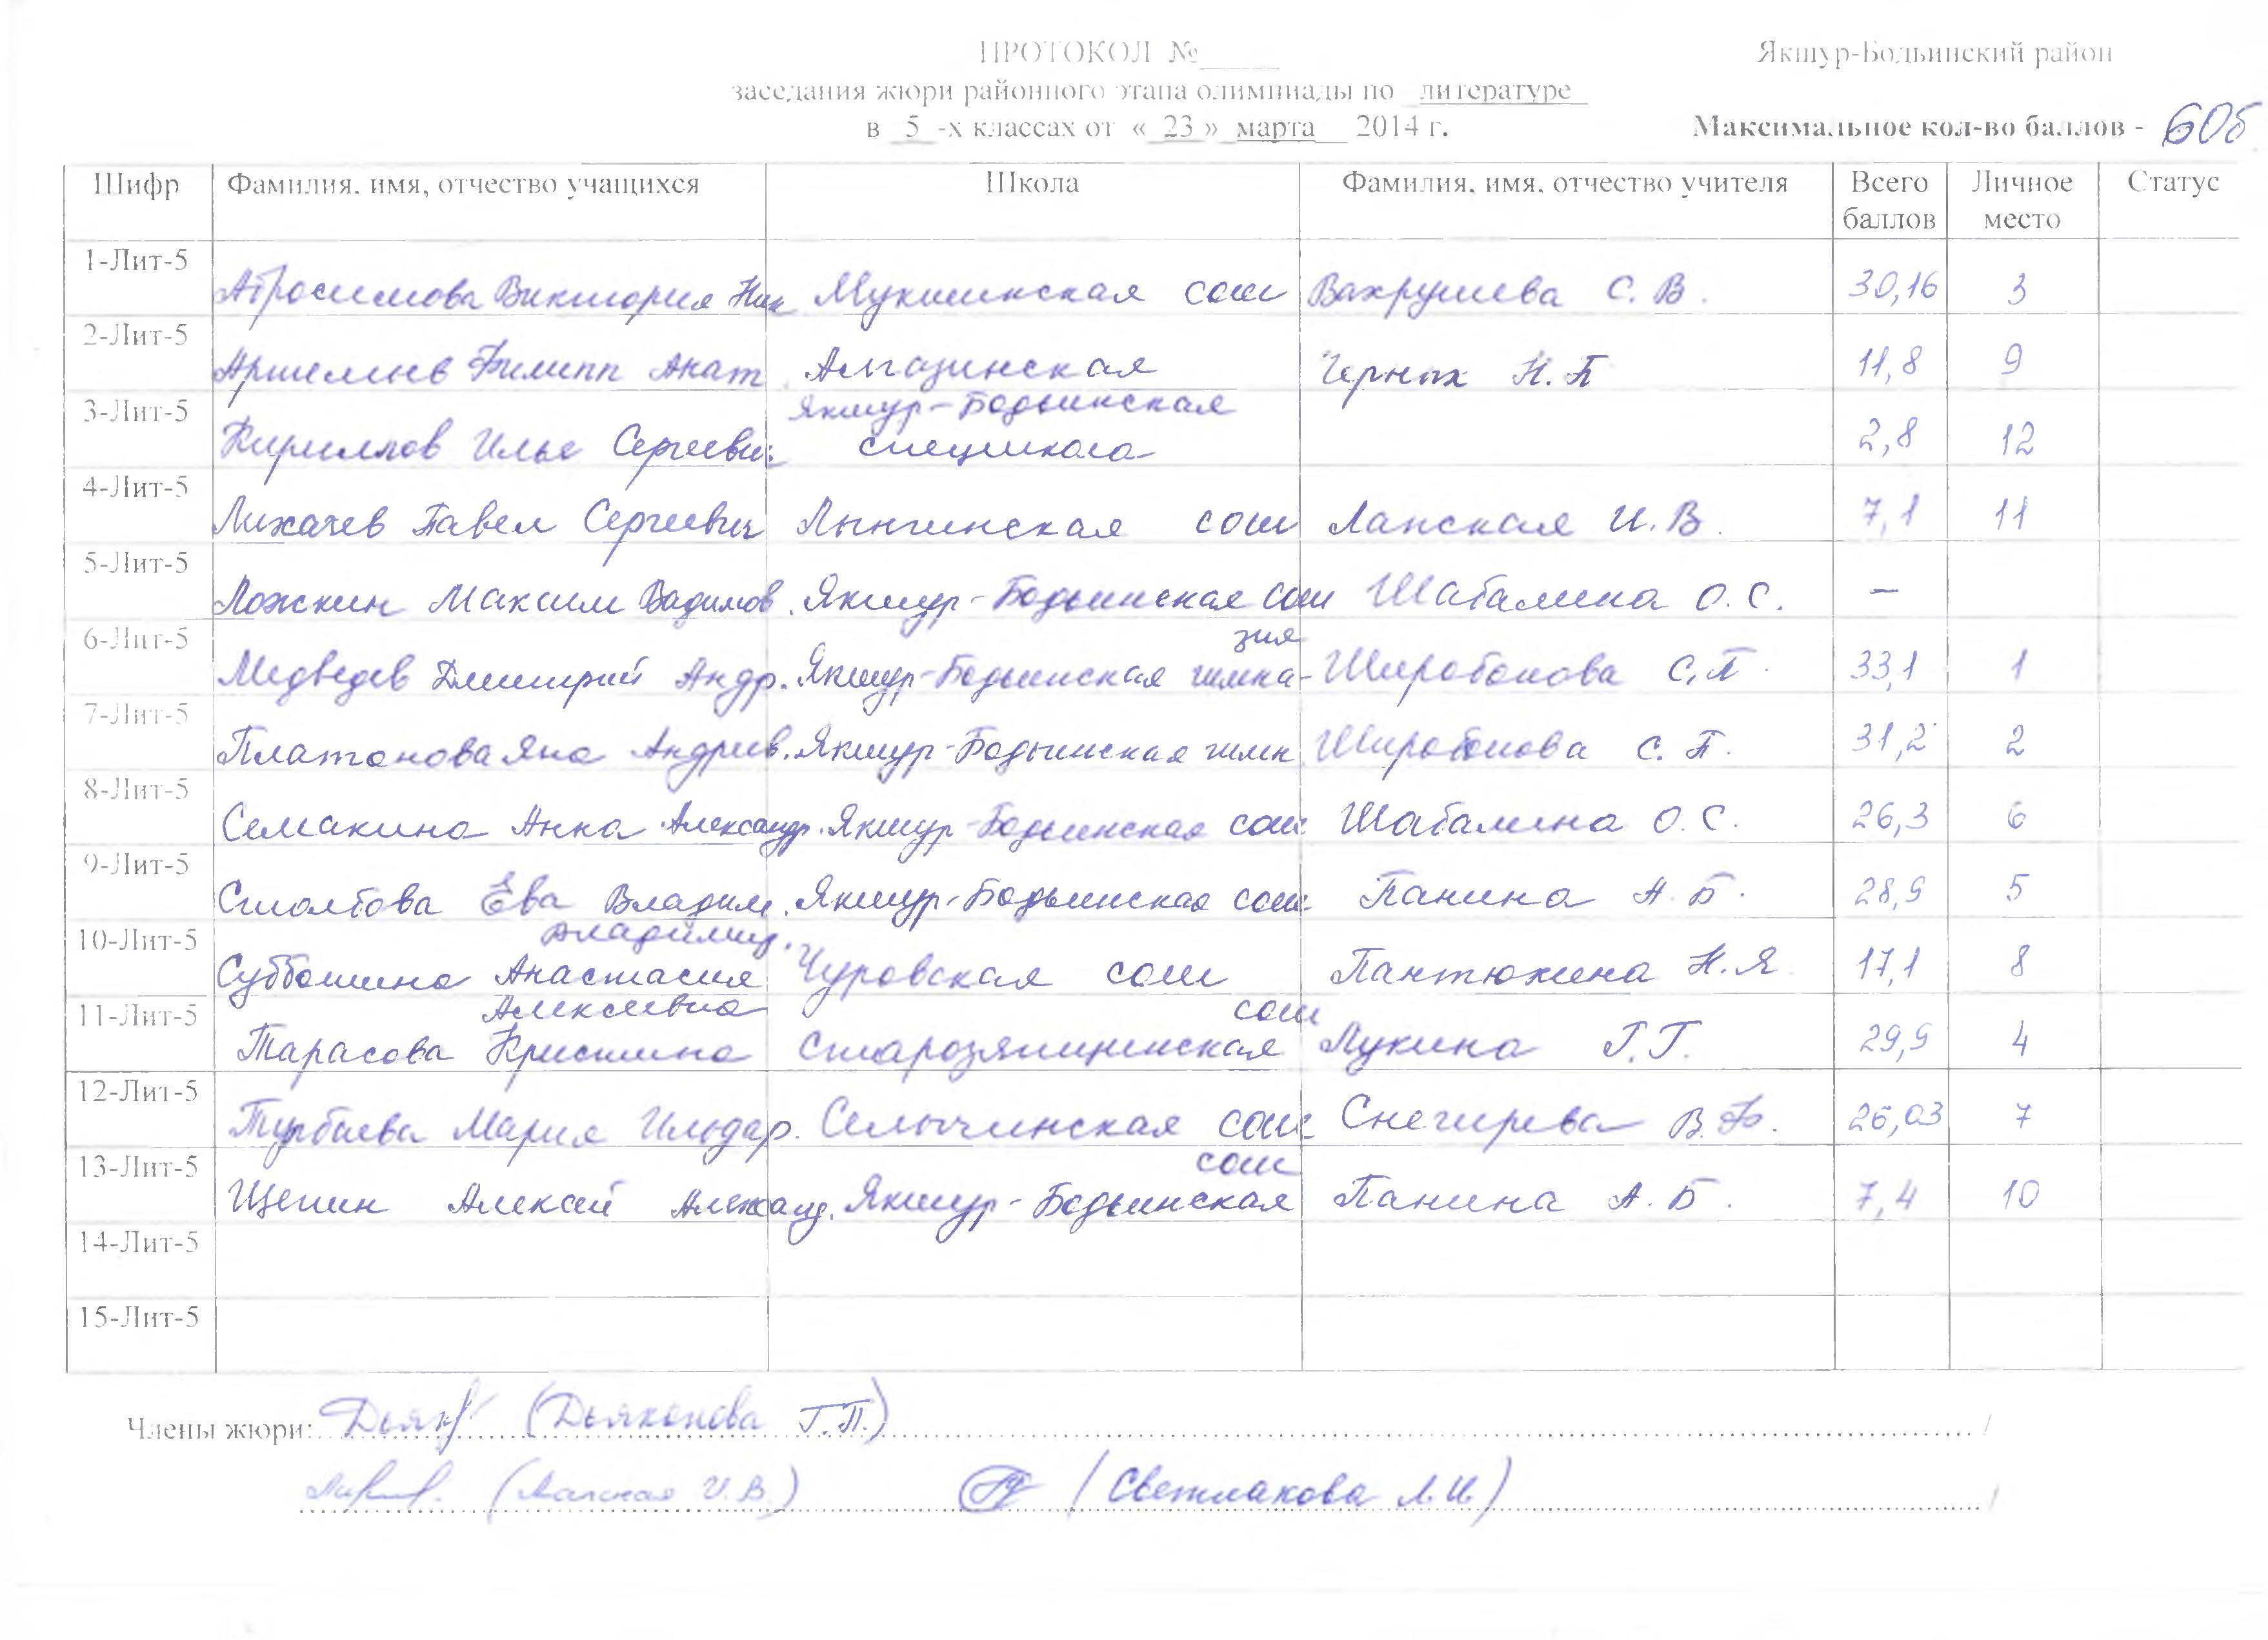 ПРОТОКОЛ №_____ Якшур-Бодьинский район
заседания жюри районного этапа олимпиады по литературе
в 5 -х классах от « 23 » марта 2014 г. Максимальное кол-во баллов - 60б
Шифр Фамилия, имя, отчество учащихся Школа Фамилия, имя, отчество учителя Всего баллов Личное место Статус
1-Лит-5 Абросимова Виктория Ник Мукшинская сош Вахрушева С. В. 30,16 3
2-Лит-5 Филипп Анат Алгазинская Черных Н. П 11,8 9
3-Лит-5 Кириллов Илья Сергеевич Якшур-Бодьинская спецшкола 2,8 12
4-Лит-5 Лихачев Павел Сергеевич Лынгинская сош Лапская И. В. 7,1 11
5-Лит-5 Ложкин Максим Вадимов. Якшур-Бодьинская сош Шабалина О. С. —
6-Лит-5 Медведев Дмитрий Андр. Якшур-Бодьинская гимназия Широбокова С. П. 33,1 1
7-Лит-5 Платонова Яна Андреев. Якшур-Бодьинская гимн Широбокова С. П. 31,2 2
8-Лит-5 Семакина Анна Александр. Якшур-Бодьинская сош Шабалина О. С. 26,3 6
9-Лит-5 Столбова Ева Владим. Якшур-Бодьинская сош Панина А. Б. 28,9 5
10-Лит-5 Субботина Анастасия Владимир. Чуровская сош Пантюхина Н. Я 17,1 8
11-Лит-5 Тарасова Кристина Алексеевна Старозятцинская сош Лукина Г. Г. 29,9 4
12-Лит-5 Мария Ильдар. Селычинская сош Снегирева В. Ф. 26,03 7
13-Лит-5 Щепин Алексей Александ. Якшур-Бодьинская сош Панина А. Б. 7,4 10
14-Лит-5
15-Лит-5
Члены жюри: (Дьяконова Г.П.) /
(Лапская И. В.) (Светлакова Л. И.) /